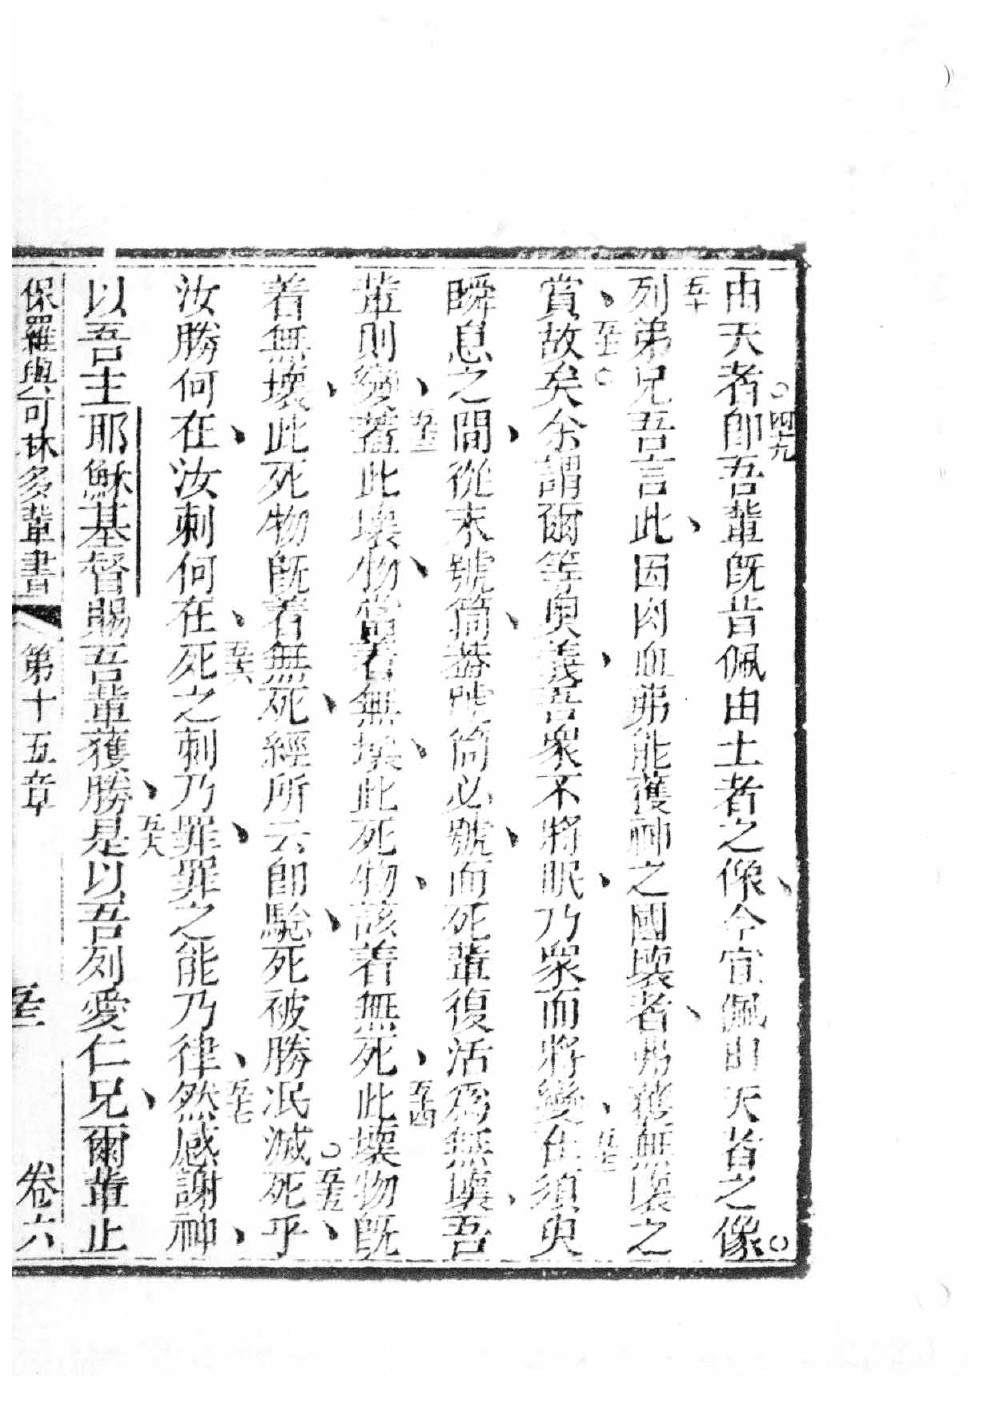 由天者○四九卽吾輩旣肯佩由土者之像、今宜佩由天者之像○
五十列弟兄吾言此、因肉血弗能獲神之國壞者、弗獲無壞之
賞、五一故矣○余謂爾等奥義、吾衆不將眠、乃衆而將變、五二在須臾
瞬息之間、從末號筒、葢號筒必號、而死輩復活爲無壞、吾
輩則變、五三葢此壞物、當着無壞、此死物、該着無死、五四此壞物旣
着無壞、此死物旣着無死、經所云卽驗、死被勝冺滅○五五死乎、
汝勝何在、汝刺何在、五六死之刺乃罪、罪之能乃律、五七然感謝神、
以吾主耶穌基督賜吾輩獲勝、五八是以吾列愛仁兄、爾輩止
保羅與可林多輩書 第十五章 五三 卷六